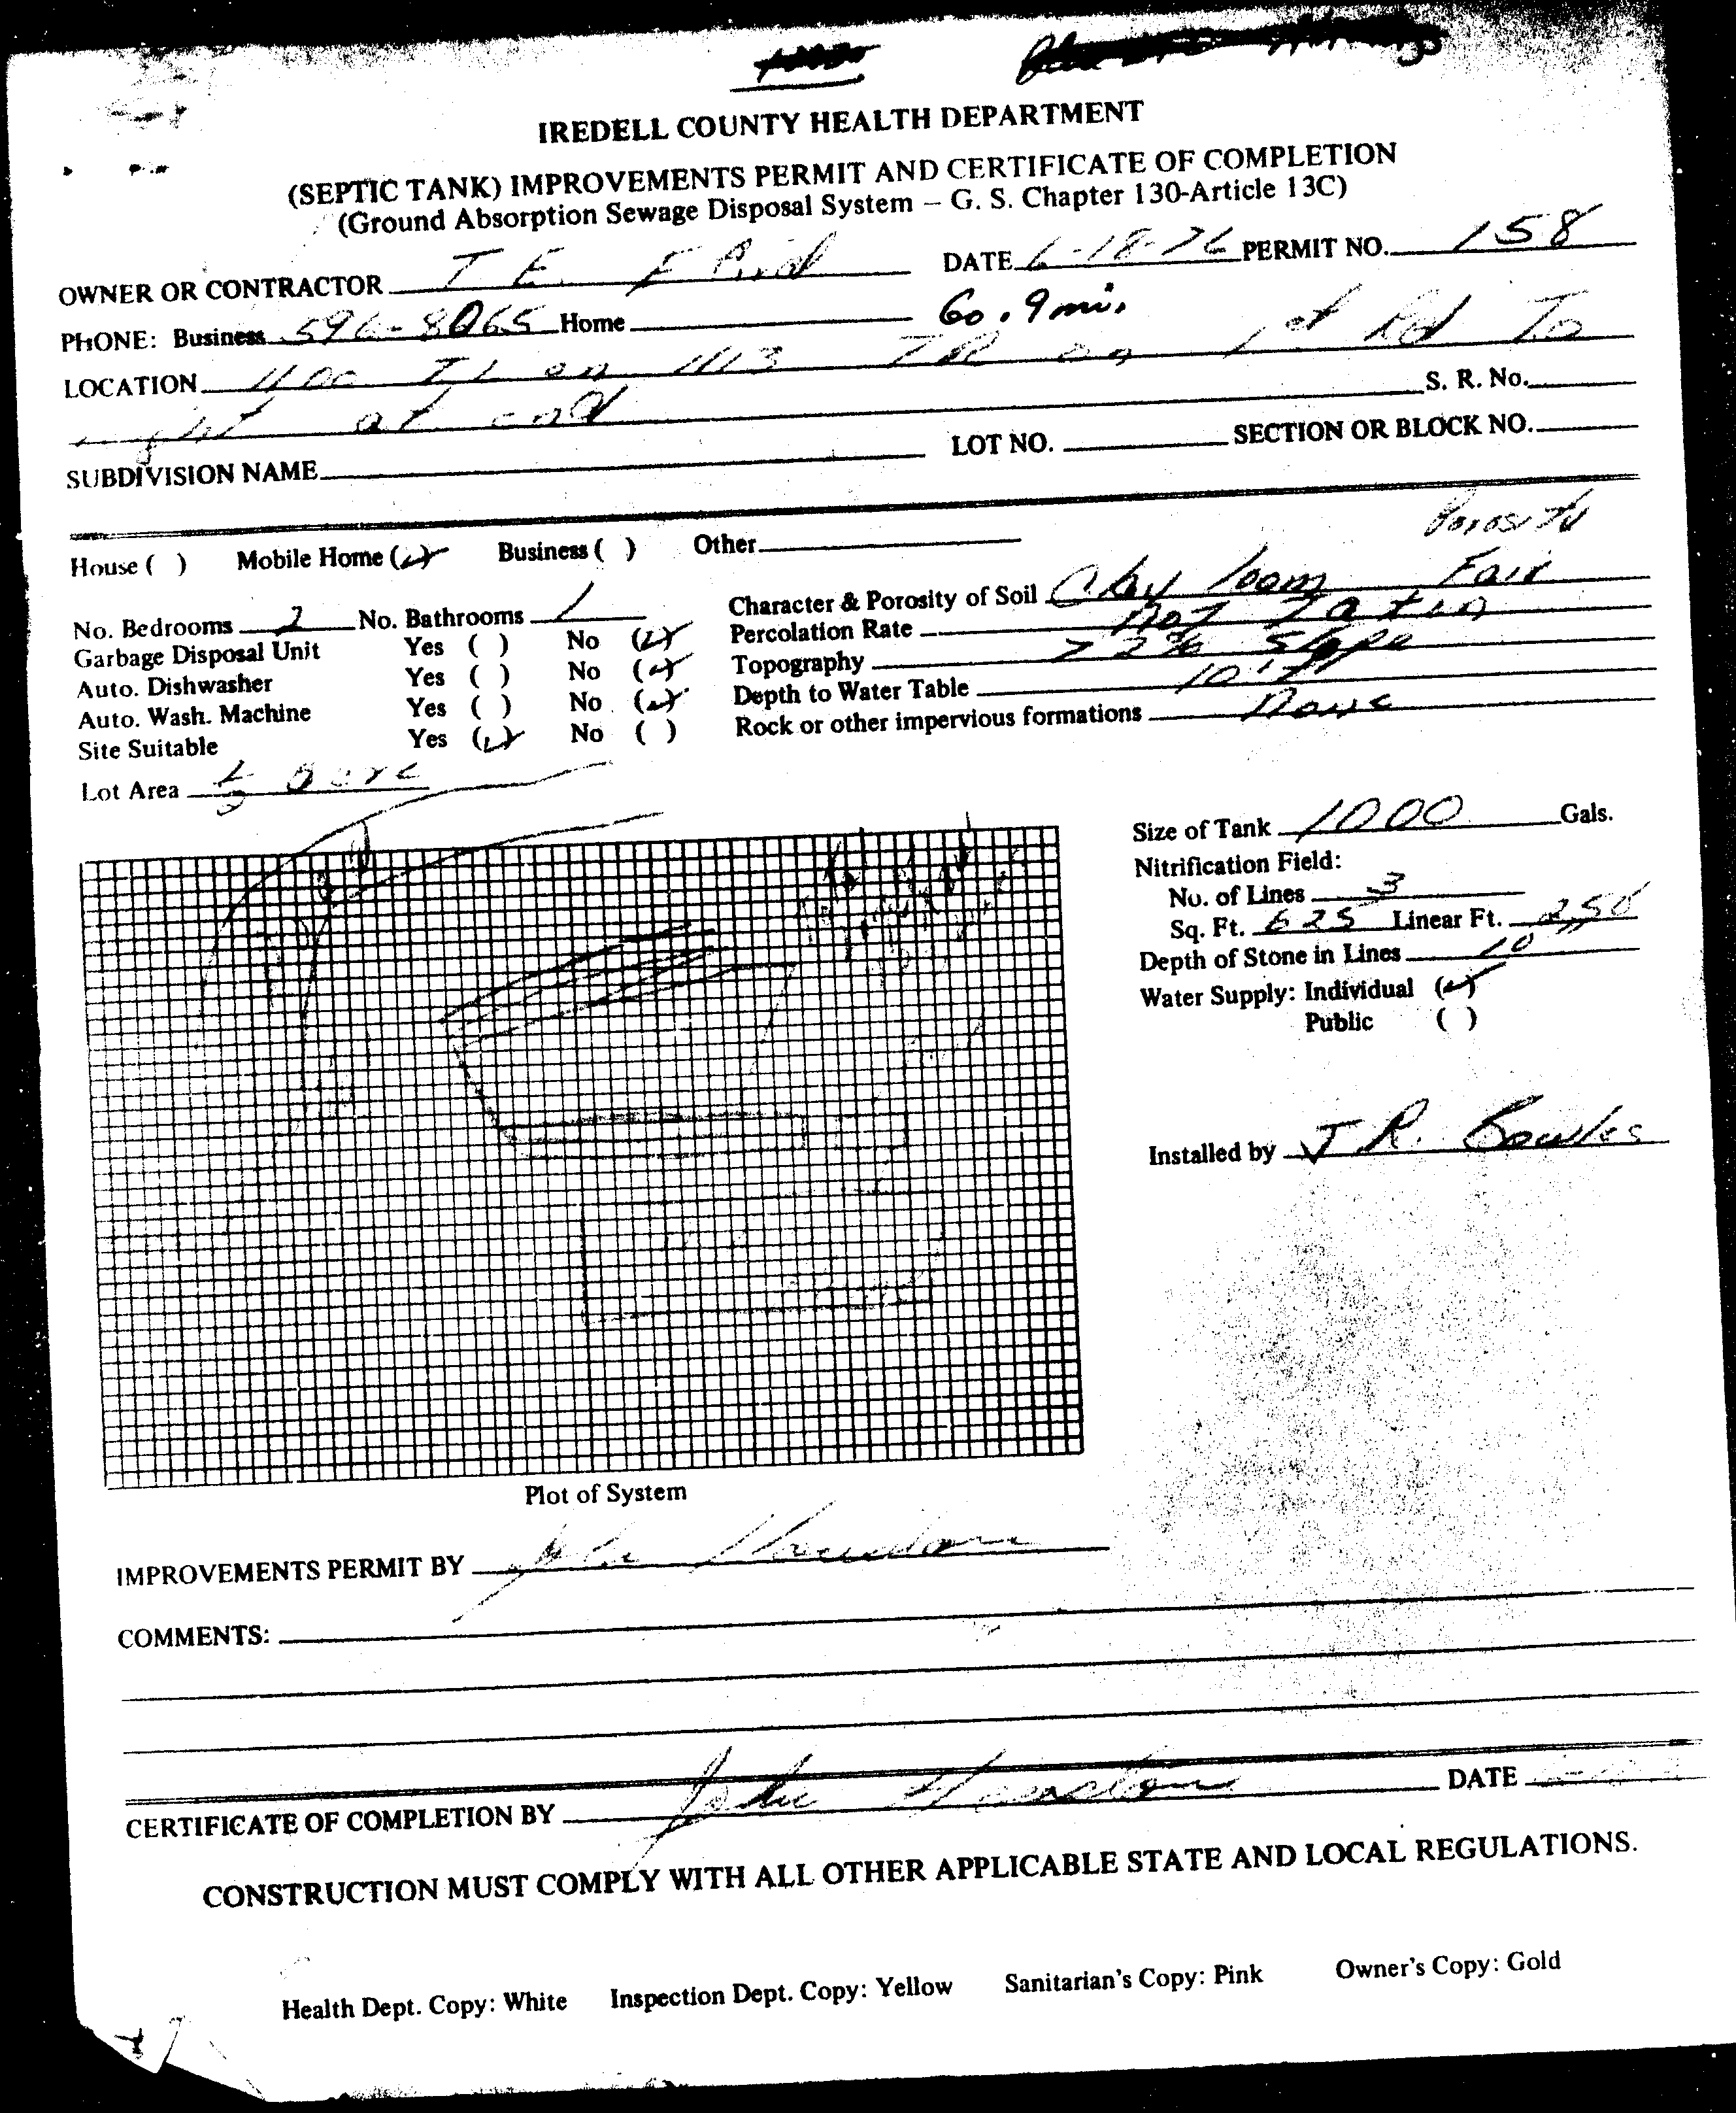 IREDELL COUNTY HEALTH DEPARTMENT
(SEPTIC TANK) IMPROVEMENTS PERMIT AND CERTIFICATE OF COMPLETION
(Ground Absorption Sewage Disposal System – G. S. Chapter 130-Article 13C)
OWNER OR CONTRACTOR T E DATE 6-18-76 PERMIT NO. 158
PHONE: Business 596-8065 Home Go .9 mi.
LOCATION 1100 TL on 1113 TR on 1st Rd To
right at end S. R. No.
SUBDIVISION NAME LOT NO. SECTION OR BLOCK NO.
Porosity
House ( ) Mobile Home (✓) Business ( ) Other
No. Bedrooms 2 No. Bathrooms 1 Character & Porosity of Soil Clay loam Fair
Garbage Disposal Unit Yes ( ) No (✓) Percolation Rate not Taken
Auto. Dishwasher Yes ( ) No (✓) Topography > 2% Slope
Auto. Wash. Machine Yes ( ) No (✓) Depth to Water Table 10'+
Site Suitable Yes (✓) No ( ) Rock or other impervious formations None
Lot Area 1/2 acre
Size of Tank 1000 Gals.
Nitrification Field:
No. of Lines 3
Sq. Ft. 625 Linear Ft. 250
Depth of Stone in Lines 10"
Water Supply: Individual (✓)
Public ( )
Installed by J R. Bowles
Plot of System
IMPROVEMENTS PERMIT BY John
COMMENTS:
CERTIFICATE OF COMPLETION BY John DATE
CONSTRUCTION MUST COMPLY WITH ALL OTHER APPLICABLE STATE AND LOCAL REGULATIONS.
Health Dept. Copy: White Inspection Dept. Copy: Yellow Sanitarian's Copy: Pink Owner's Copy: Gold